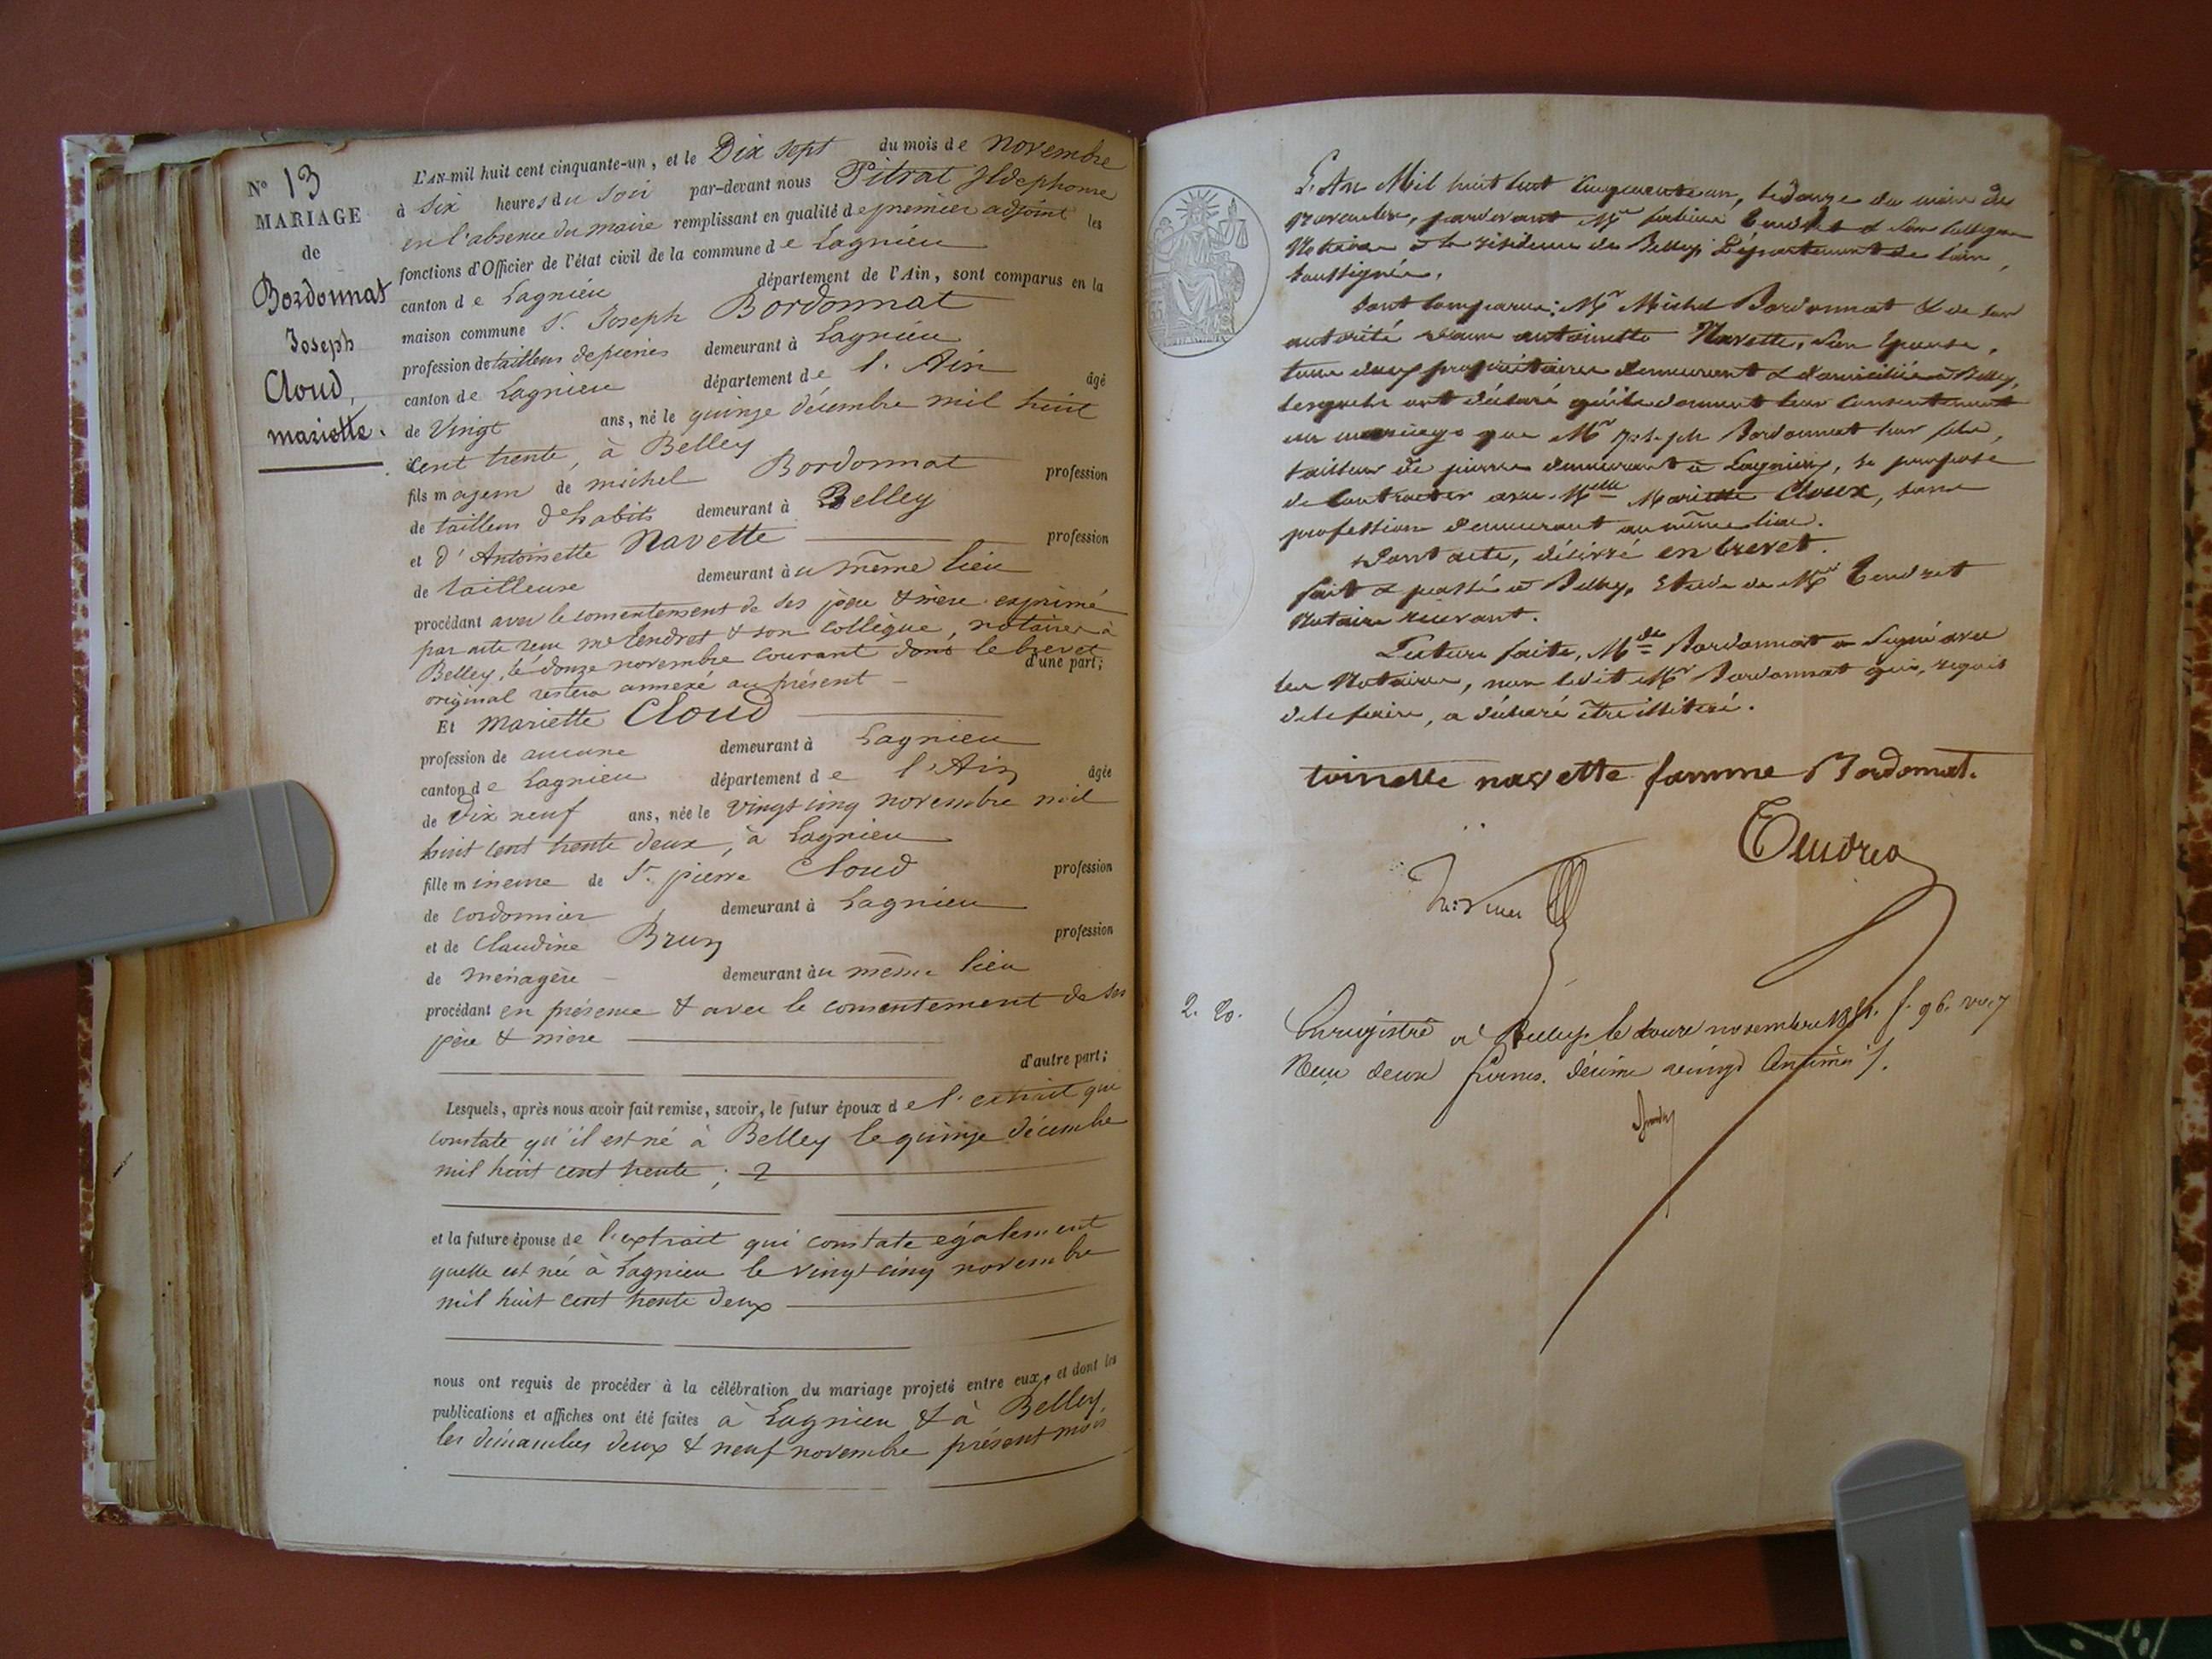 N° 13
MARIAGE
de
Bordonnat
Joseph
Cloud,
mariette.
L'AN mil huit cent cinquante-un, et le Dix sept du mois de novembre
à six heures du soir par-devant nous Pitrat Ildephonse
en l'absence du maire remplissant en qualité de premier adjoint les
fonctions d'Officier de l'état civil de la commune de Lagnieu
canton de Lagnieu département de l'Ain, sont comparus en la
maison commune Sr. Joseph Bordonnat
profession de tailleur de pierres demeurant à Lagnieu
canton de Lagnieu département de l'Ain âgé
de Vingt ans, né le quinze décembre mil huit
cent trente, à Belley
fils majeur de michel Bordonnat profession
de tailleur d'habits demeurant à Belley
et d'Antoinette Navette profession
de tailleuse demeurant au même lieu
procédant avec le consentement de ses père & mère exprimé
par acte reçu me Tendret & son collègue, notaires à
Belley, le douze novembre courant dont le brevet
original restera annexé au présent d'une part;
Et Mariette Cloud
profession de aucune demeurant à Lagnieu
canton de Lagnieu département de l'Ain âgée
de Dix neuf ans, née le vingt cinq novembre mil
huit cent trente deux, à Lagnieu
fille mineure de Sr. pierre Cloud profession
de cordonnier demeurant à Lagnieu
et de Claudine Brun profession
de ménagère demeurant au même lieu
procédant en présence & avec le consentement de ses
père & mère
d'autre part;
Lesquels, après nous avoir fait remise, savoir, le futur époux de l'extrait qui
constate qu'il est né à Belley le quinze décembre
mil huit cent trente;
et la future épouse de l'extrait qui constate également
quelle est née à Lagnieu le vingt cinq novembre
mil huit cent trente deux
nous ont requis de procéder à la célébration du mariage projeté entre eux, et dont les
publications et affiches ont été faites à Lagnieu & à Belley,
les dimanches deux & neuf novembre présent mois
L'An Mil huit cent cinquante un, le douze du mois de
Novembre, pardevant Me Tendret & son collègue
Notaires à la résidence de Belley, Département de l'ain,
soussignés,
Sont comparus: Mr Michel Bordonnat & de son
autorité dame antoinette Navette, son épouse,
tous deux propriétaires demeurant & domiciliés à Belley,
lesquels ont déclaré qu'ils donnent leur consentement
au mariage que Mr Joseph Bordonnat leur fils,
tailleur de pierres demeurant à Lagnieu, se propose
de contracter avec Melle Mariette Cloux, sans
profession demeurant au même lieu.
Dont acte, délivré en brevet.
fait & passé à Belley, Etude de Me Tendret
Notaire recevant.
Lecture faite, Mde Bordonnat a signé avec
les Notaires, non ledit Mr Bordonnat qui, requis
de le faire, a déclaré être illitéré.
toinette navette famme Bordonnat.
Tendret
2. 20.
Enregistré à Belley le douze novembre 1851. f. 96.
Reçu deux francs. décime vingt centimes